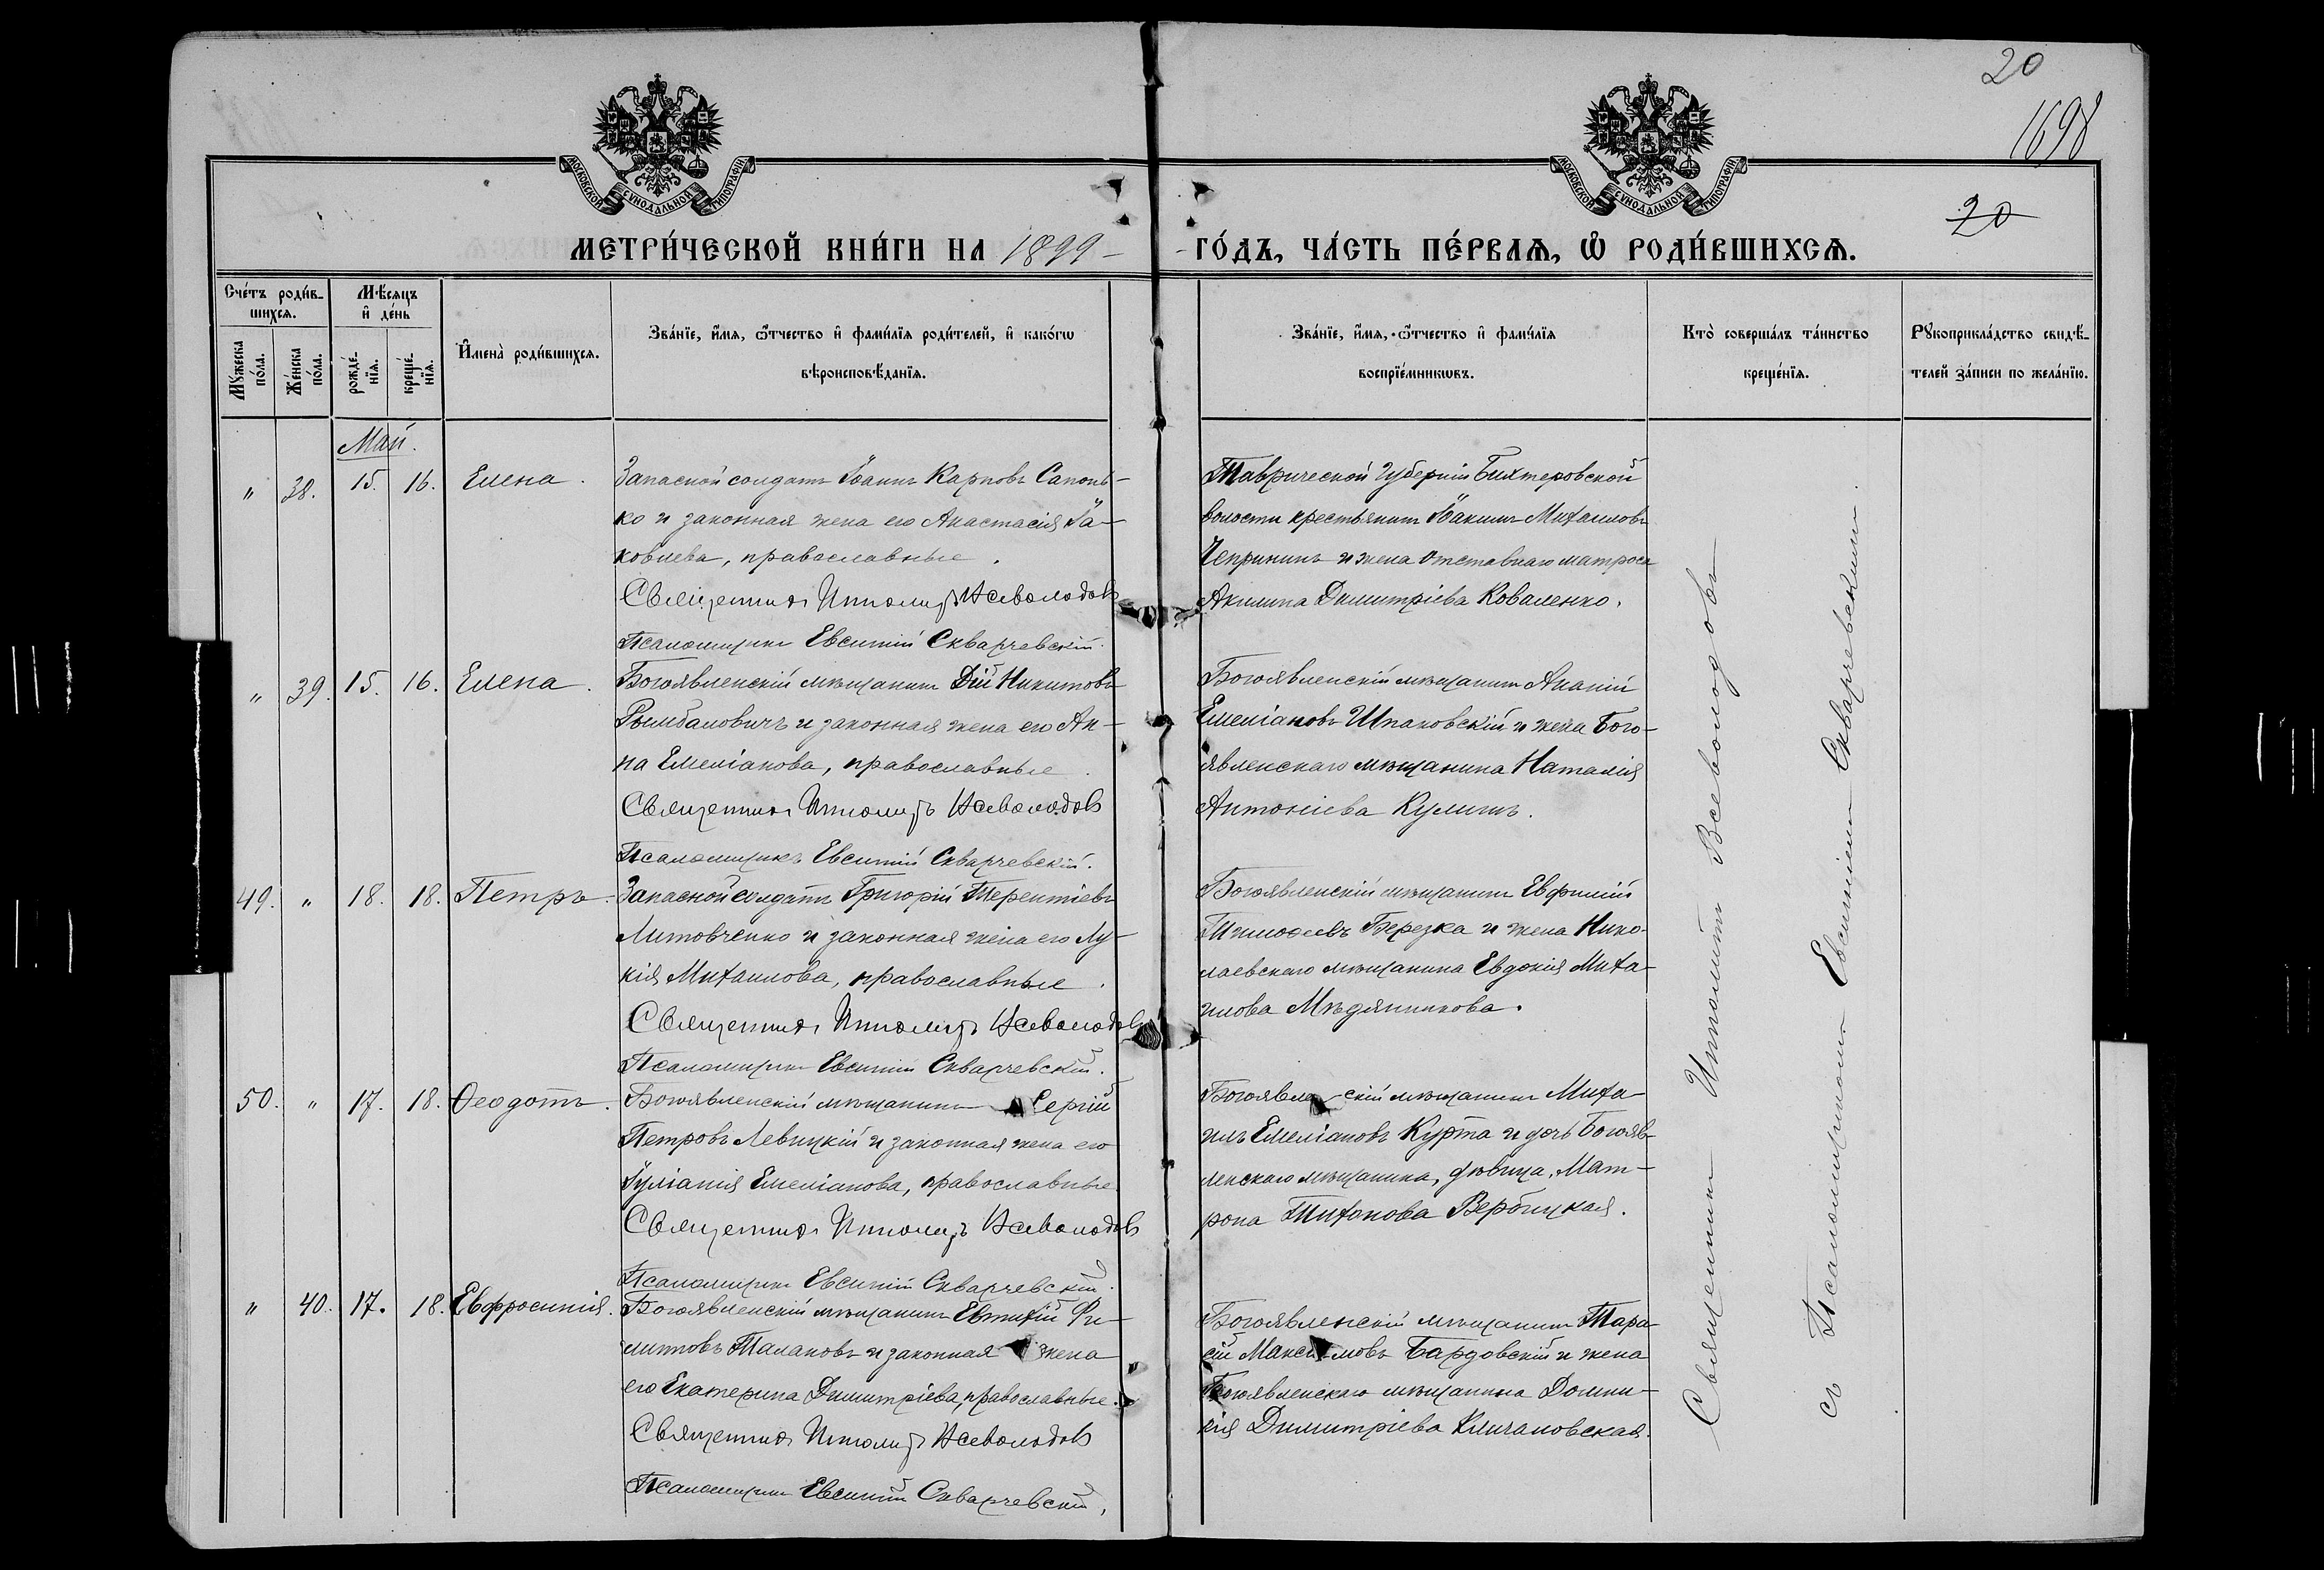 20
1698
20
МОСКОВСКОЙ СѴНОДАЛЬНОЙ ТИПОГРАФІИ
МОСКОВСКОЙ СѴНОДАЛЬНОЙ ТИПОГРАФІИ
МЕТРИ́ЧЕСКОЙ КНИ́ГИ НА 1899 - ГО́ДЪ, ЧА́СТЬ ПЕ́РВАѦ, Ѽ РОДИ́ВШИХСѦ.
Сче́тъ роди́в-
шихсѧ.
Мꙋжеска
по́ла.
Же́нска
по́ла.
Мѣ́сѧцъ
и҆ де́нь
рожде́-
нїѧ.
креще́-
нїѧ.
И҆мена̀ роди́вшихсѧ.
Зва́нїе, и҆́мѧ, ѻ҆́тчество и҆ фами́лїѧ роди́телей, и҆ како́гѡ
вѣроисповѣ́данїѧ.
Зва́нїе, и҆́мѧ, ѻ҆́тчество и҆ фами́лїѧ
воспрїе́мникѡвъ.
Кто̀ соверша́лъ та́инство
креще́нїѧ.
Рꙋкоприкла́дство свидѣ́-
телей за́писи по жела́нїю.
Май.
" 38. 15. 16. Елена.
Запасной солдатъ Іоаннъ Карповъ Сапонь-
ко и законная жена его Анастасія Іа-
ковлева, православные.
Священникъ Ипполитъ Всеволодовъ
Псаломщикъ Евсигній Скварчевскій.
Таврической губерніи Бихтеровской
волости крестьянинъ Іоакимъ Михаиловъ
Чепрининъ и жена отставнаго матроса
Акилина Димитріева Коваленко.
" 39. 15. 16. Елена.
Богоявленскій мѣщанинъ Дій Никитовъ
Рымбаловичъ и законная жена его Ан-
на Емеліанова, православные.
Священникъ Ипполитъ Всеволодовъ
Псаломщикъ Евсигній Скварчевскій.
Богоявленскій мѣщанинъ Ананій
Емеліановъ Шпаковскій и жена Бого-
явленскаго мѣщанина Наталія
Антоніева Кулишъ.
49. " 18. 18. Петръ.
Запасной солдатъ Григорій Терентіевъ
Литовченко и законная жена его Лу-
кія Михаилова, православные.
Священникъ Ипполитъ Всеволодовъ
Псаломщикъ Евсигній Скварчевскій.
Богоявленскій мѣщанинъ Евфимій
Тимоѳеевъ Березка и жена Нико-
лаевскаго мѣщанина Евдокія Миха-
илова Мѣдянникова.
50. " 17. 18. Ѳеодотъ.
Богоявленскій мѣщанинъ Сергій
Петровъ Левицкій и законная жена его
Іуліанія Емеліанова, православные.
Священникъ Ипполитъ Всеволодовъ
Псаломщикъ Евсигній Скварчевскій.
Богоявленскій мѣщанинъ Миха-
илъ Емеліановъ Курта и дочь Богояв-
ленскаго мѣщанина, дѣвица, Мат-
рона Тихонова Вербицкая.
" 40. 17. 18. Евфросинія.
Богоявленскій мѣщанинъ Евтихій Фи-
липповъ Талановъ и законная жена
его Екатерина Димитріева, православные.
Священникъ Ипполитъ Всеволодовъ
Псаломщикъ Евсигній Скварчевскій,
Богоявленскій мѣщанинъ Тара-
сій Максимовъ Бардовскій и жена
Богоявленскаго мѣщанина Домни-
кія Димитріева Кличановская.
Священникъ Ипполитъ Всеволодовъ
съ Псаломщикомъ Евсигніемъ Скварчевскимъ.